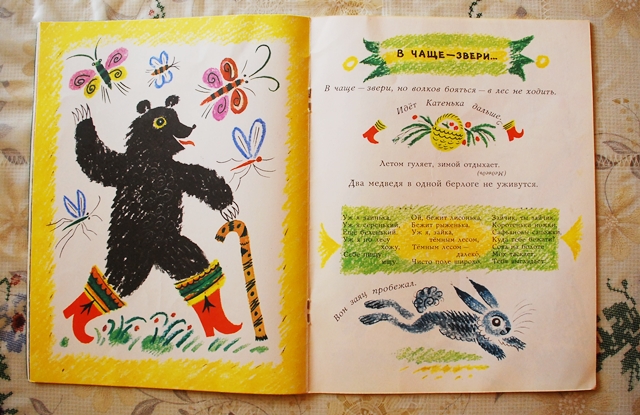 В ЧАЩЕ—ЗВЕРИ...
В чаще — звери, но волков бояться — в лес не ходить.
Идёт Катенька дальше.
Летом гуляет, зимой отдыхает.
(Медведь)
Два медведя в одной берлоге не уживутся.
Уж я заинька,
Уж я серенький,
Уж я по полю
хожу,
Себе пищу
ищу.
Ой, бежит лисонька,
Бежит рыженька,
Уж я, зайка,
тёмным лесом,
Тёмным лесом —
далеко,
Чисто поле широко.
Зайчик, ты зайчик,
Коротеньки ножки,
Сафьяновы сапожки,
Куда тебе бежать?
Сова на болоте
Вон заяц пробежал.